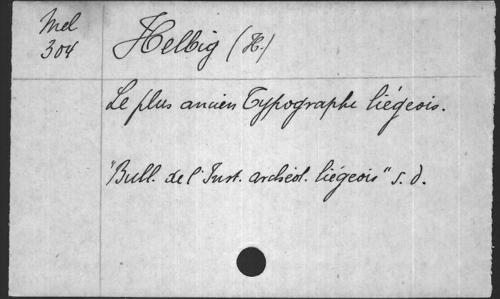 Mel
304
Helbig (H.)
Le plus ancien Typographe liégeois.
"Bull. de l'Inst. archéol. liégeois" s. d.